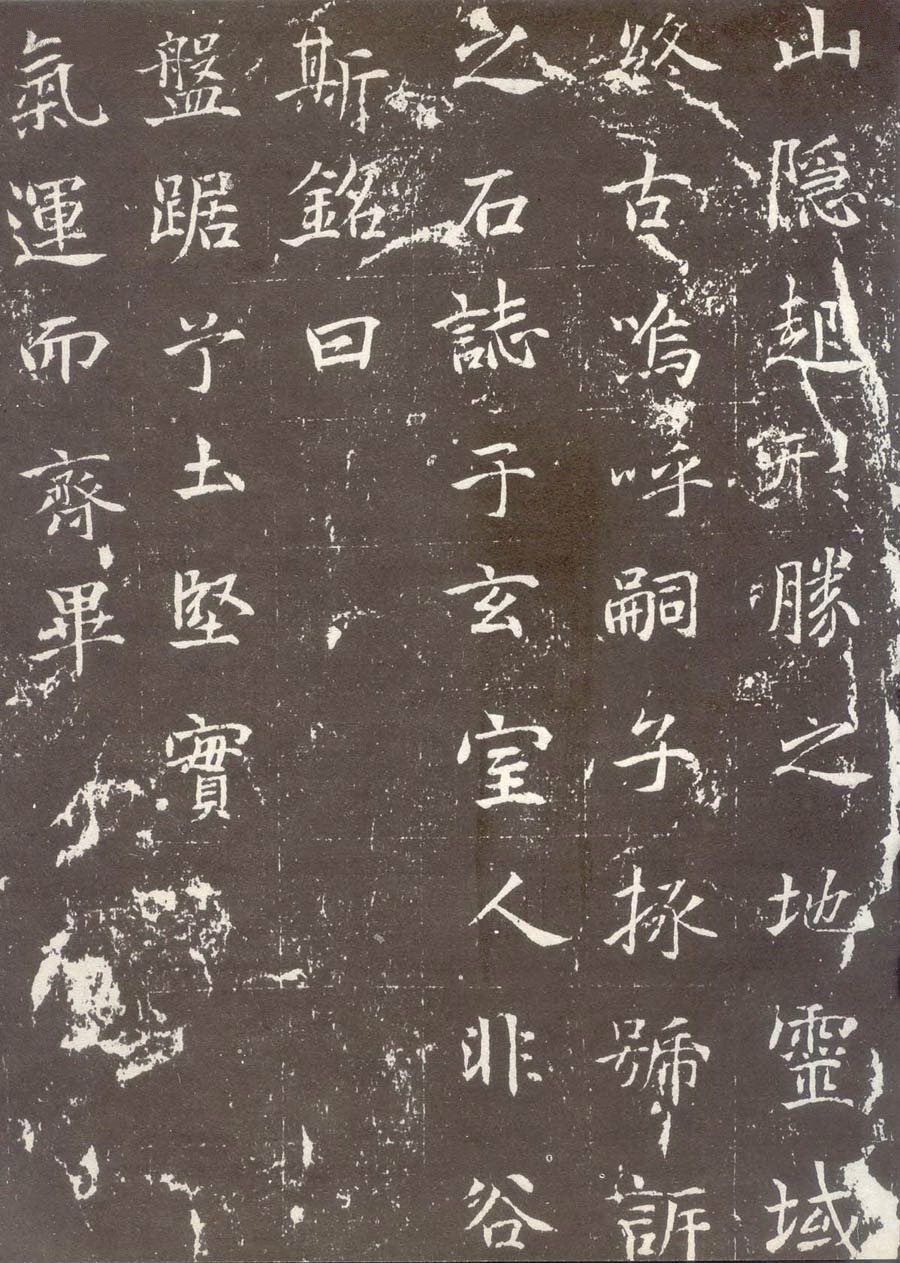 山隱起形勝之地靈域
終古嗚呼嗣子掾號訴
之石誌于玄室人非谷
斯銘曰
盤踞兮土堅實
氣運而齊畢